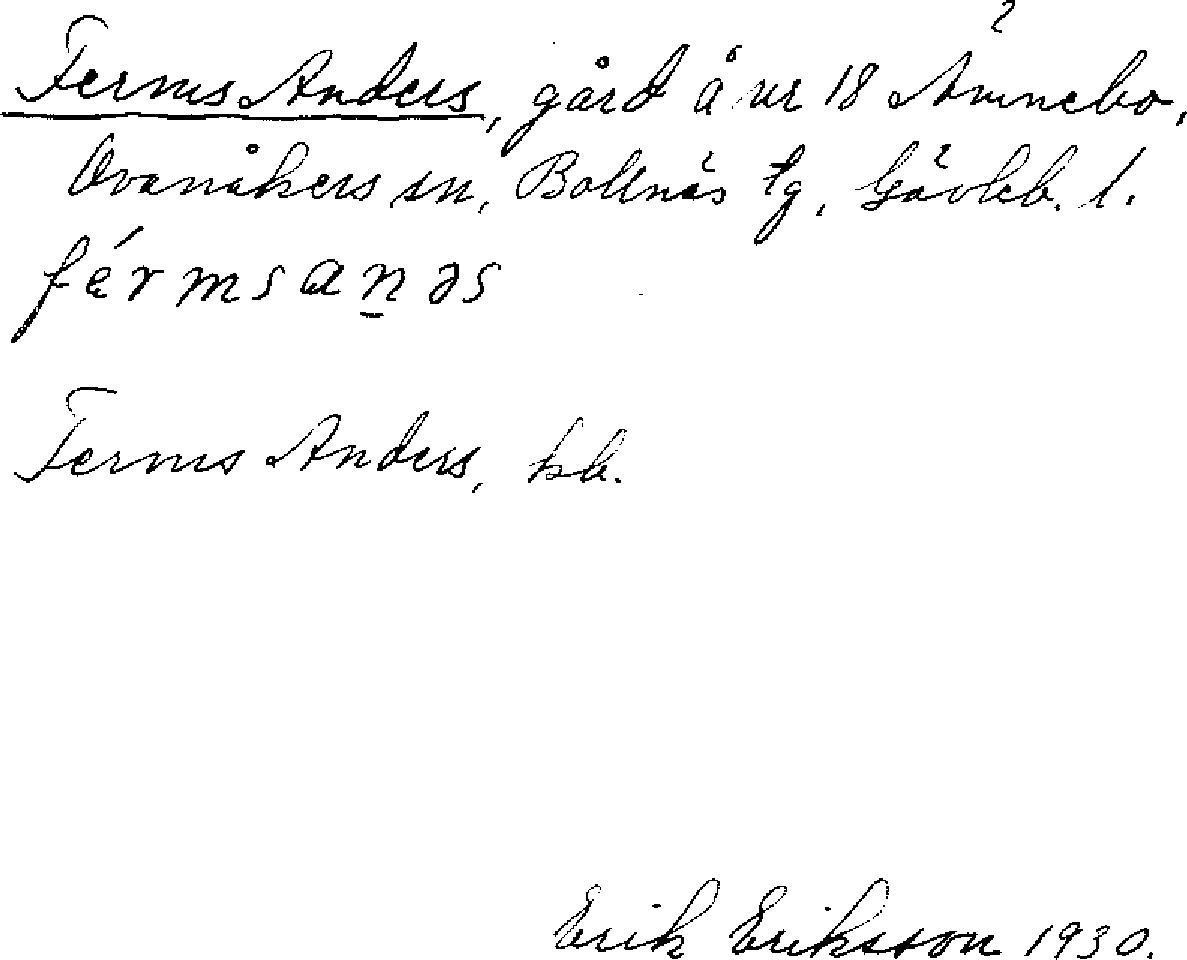 Ferms Anders, gård å nr 18 Ämnebo,
Ovanåkers sn, Bollnäs tg, Gävleb. l.
férmsanəs
Ferms Anders, kb.
Erik Eriksson 1930.